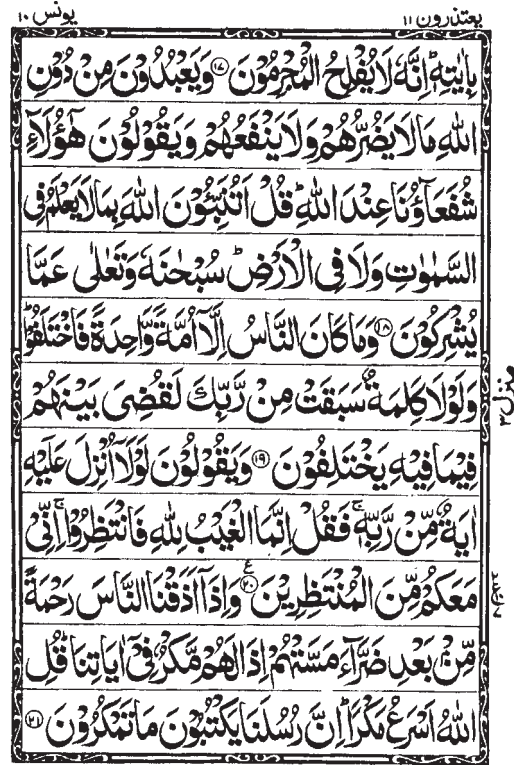 یعتذرون ۱۱
یونس ۱۰
بِاٰيٰتِهٖ ؕ اِنَّهٗ لَا يُفْلِحُ الْمُجْرِمُوْنَ ۝۱۷ وَيَعْبُدُوْنَ مِنْ دُوْنِ
اللّٰهِ مَا لَا يَضُرُّهُمْ وَلَا يَنْفَعُهُمْ وَيَقُوْلُوْنَ هٰٓؤُلَآءِ
شُفَعَآؤُنَا عِنْدَ اللّٰهِ ؕ قُلْ اَتُنَبِّـُٔوْنَ اللّٰهَ بِمَا لَا يَعْلَمُ فِى
السَّمٰوٰتِ وَلَا فِى الْاَرْضِ ؕ سُبْحٰنَهٗ وَتَعٰلٰى عَمَّا
يُشْرِكُوْنَ ۝۱۸ وَمَا كَانَ النَّاسُ اِلَّآ اُمَّةً وَّاحِدَةً فَاخْتَلَفُوْا ؕ
وَلَوْلَا كَلِمَةٌ سَبَقَتْ مِنْ رَّبِّكَ لَقُضِىَ بَيْنَهُمْ
فِيْمَا فِيْهِ يَخْتَلِفُوْنَ ۝۱۹ وَيَقُوْلُوْنَ لَوْلَآ اُنْزِلَ عَلَيْهِ
اٰيَةٌ مِّنْ رَّبِّهٖ ۚ فَقُلْ اِنَّمَا الْغَيْبُ لِلّٰهِ فَانْتَظِرُوْا ۚ اِنِّىْ
مَعَكُمْ مِّنَ الْمُنْتَظِرِيْنَ ۝۲۰ ع وَاِذَآ اَذَقْنَا النَّاسَ رَحْمَةً
مِّنْۢ بَعْدِ ضَرَّآءَ مَسَّتْهُمْ اِذَا لَهُمْ مَّكْرٌ فِىْٓ اٰيَاتِنَا ؕ قُلِ
اللّٰهُ اَسْرَعُ مَكْرًا ؕ اِنَّ رُسُلَنَا يَكْتُبُوْنَ مَا تَمْكُرُوْنَ ۝۲۱
منزل ۳